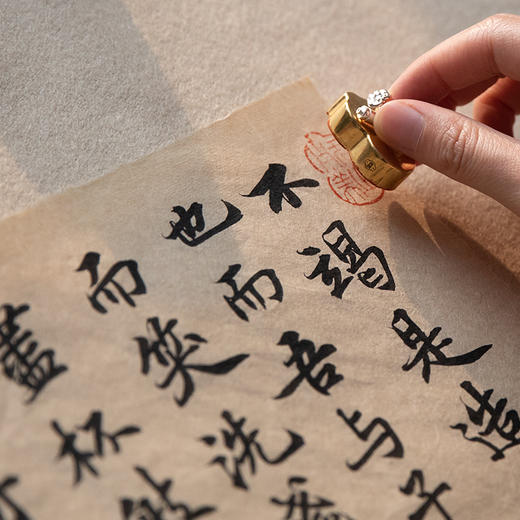 不竭是造
也而吾与子
而笑洗
盡杯